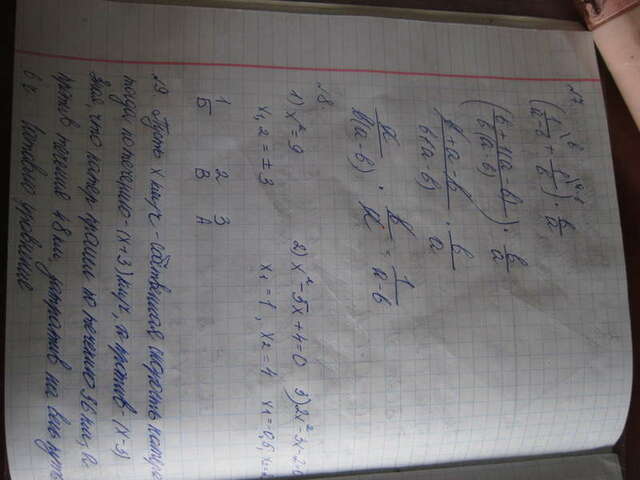 №7.
(1/(a-b) \b + 1/b \a-b) · b/a
((b+1(a-b))/(b(a-b))) · b/a
(b+a-b)/(b(a-b)) · b/a
a/(b(a-b)) · b/a = 1/(a-b)
№8.
1) x²=9 2) x²-5x+4=0 3) 2x²-3x-2=0
x1,2 = ±3 x1=1, x2=4 x1=-0,5, x2=
1 2 3
Б В А
№9 Пусть x км/ч - собственная скорость катера
тогда по течению - (x+3) км/ч, а против - (x-3)
Зная, что катер прошел по течению 36 км, а
против течения 48 км, затратив на весь путь
6 ч Составим уравнение